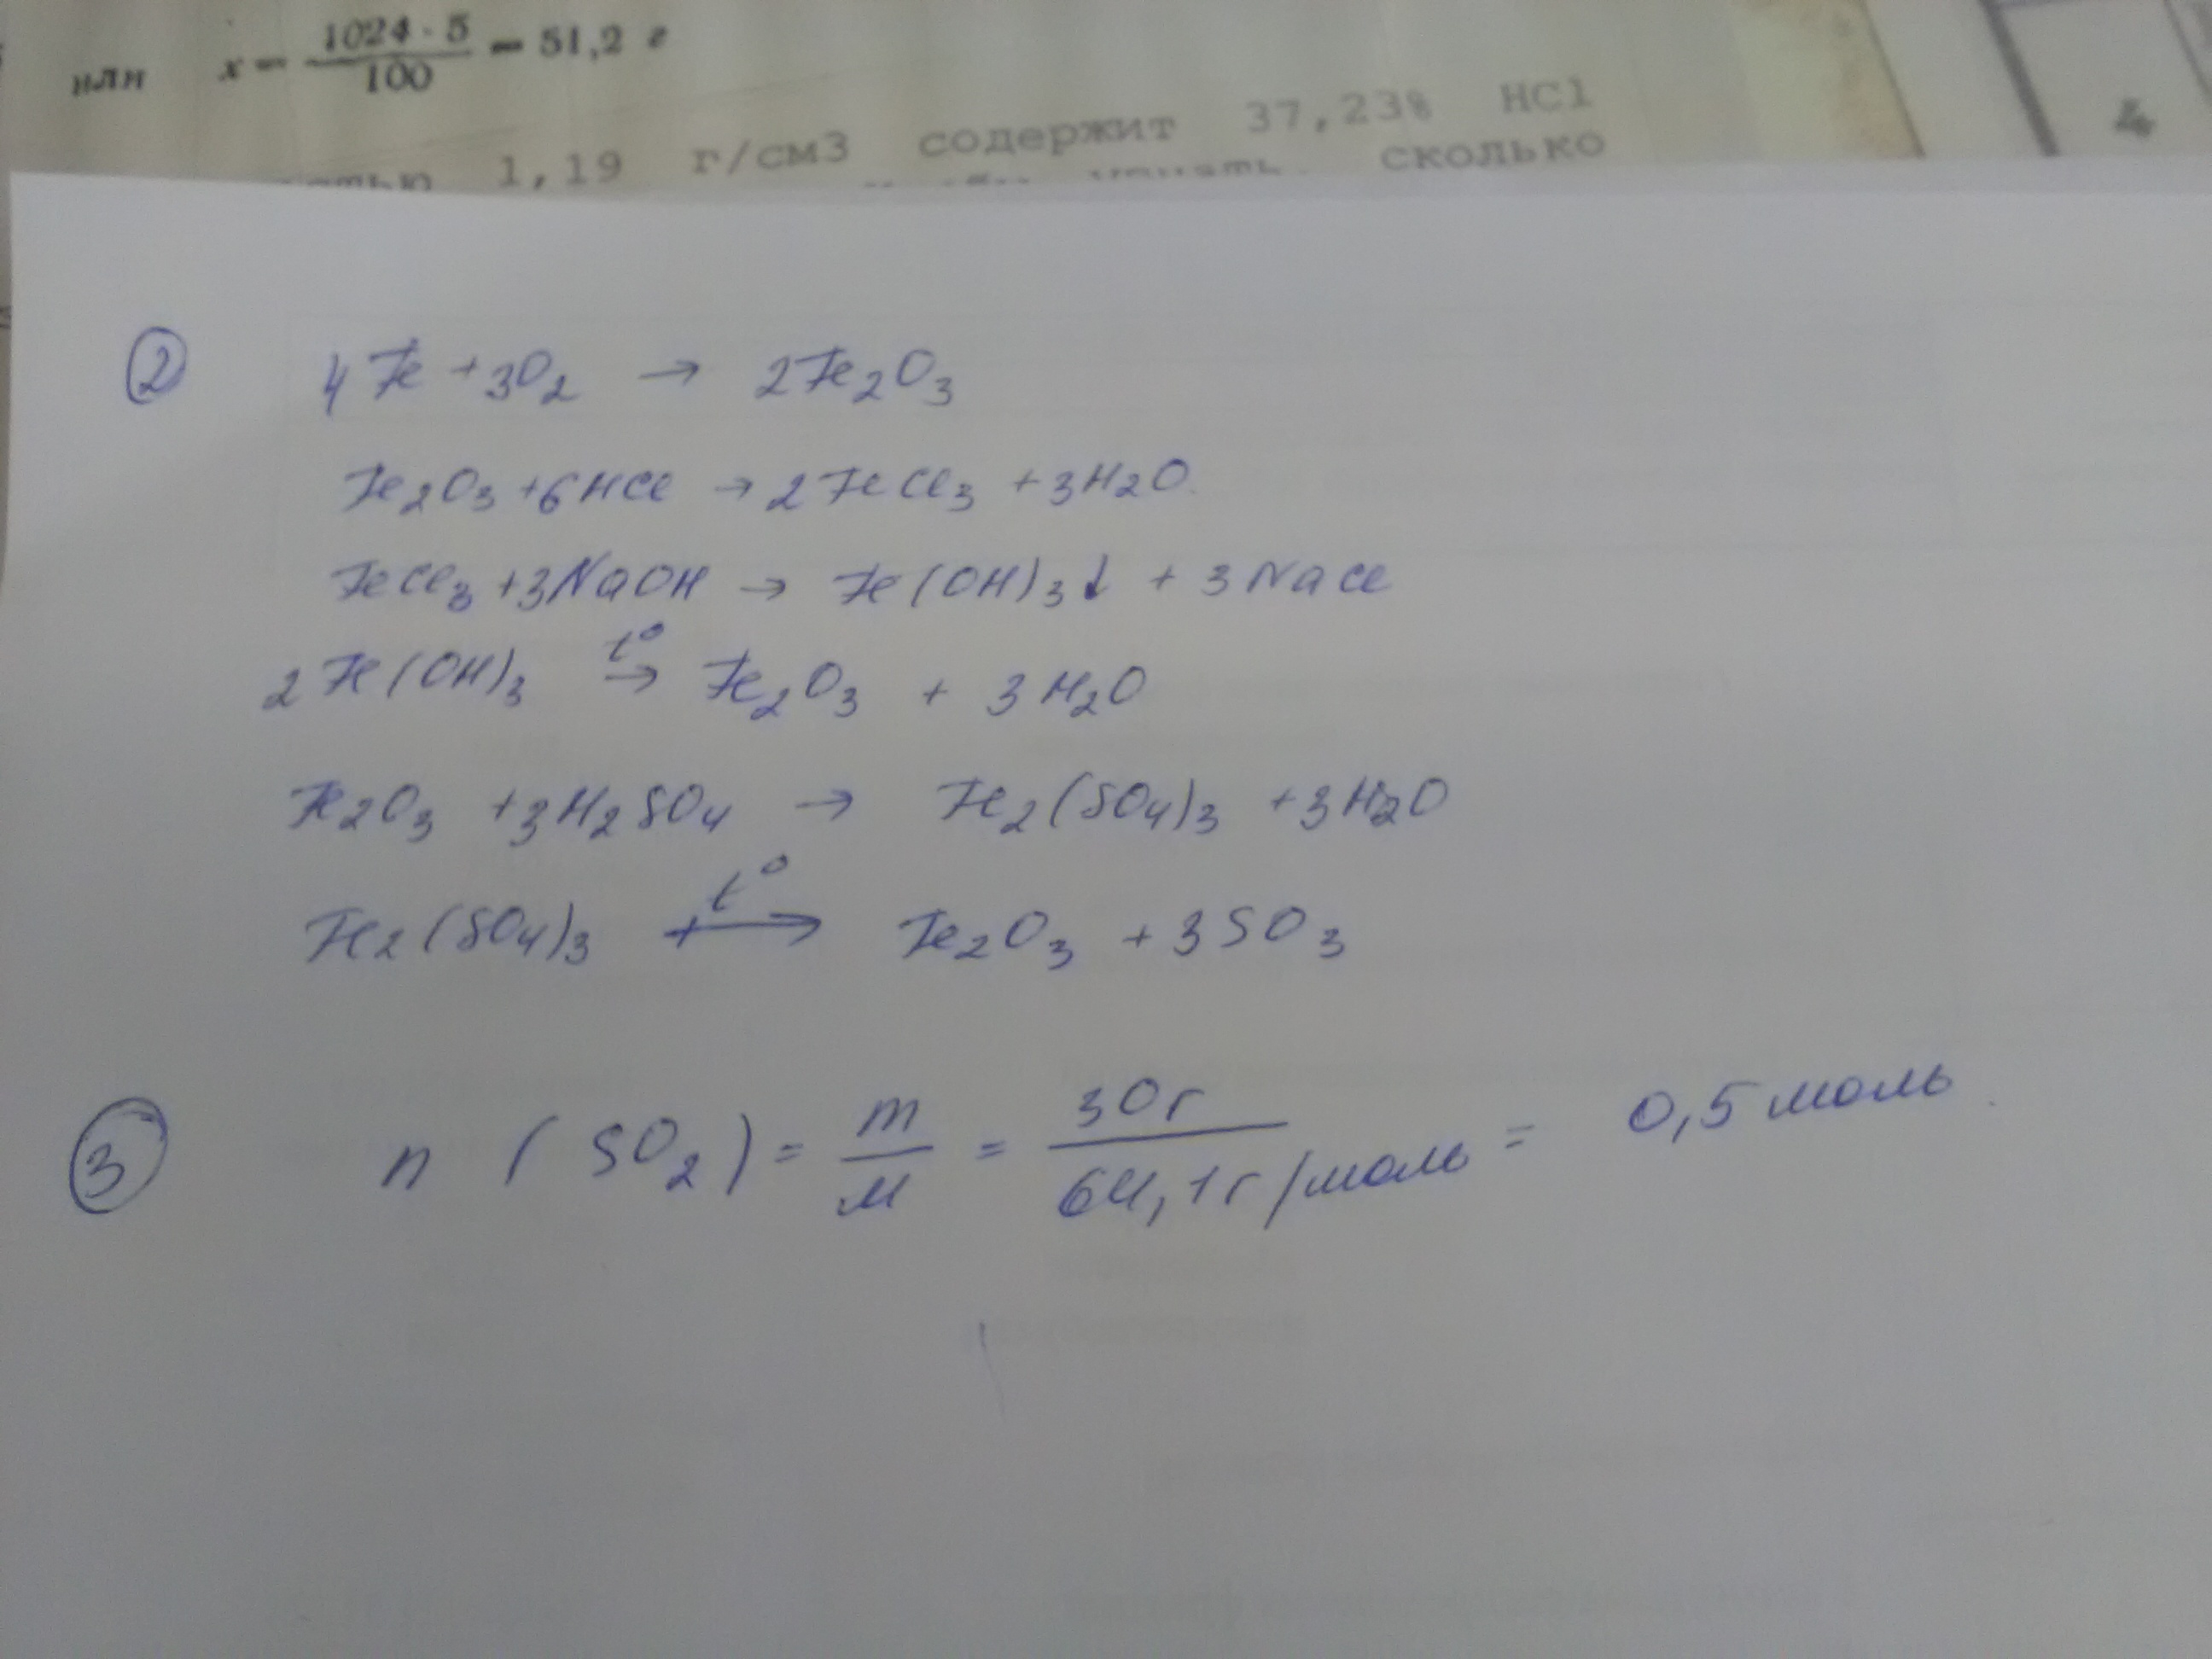 или x = 1024 · 5 / 100 = 51,2 г
1,19 г/см3 содержит 37,23% HCl
сколько
4
2
4Fe + 3O2 → 2Fe2O3
Fe2O3 + 6HCl → 2FeCl3 + 3H2O
FeCl3 + 3NaOH → Fe(OH)3↓ + 3NaCl
2Fe(OH)3 t° → Fe2O3 + 3H2O
Fe2O3 + 3H2SO4 → Fe2(SO4)3 + 3H2O
Fe2(SO4)3 t° → Fe2O3 + 3SO3
3
n (SO2) = m / M = 30г / 64,1г/моль = 0,5 моль